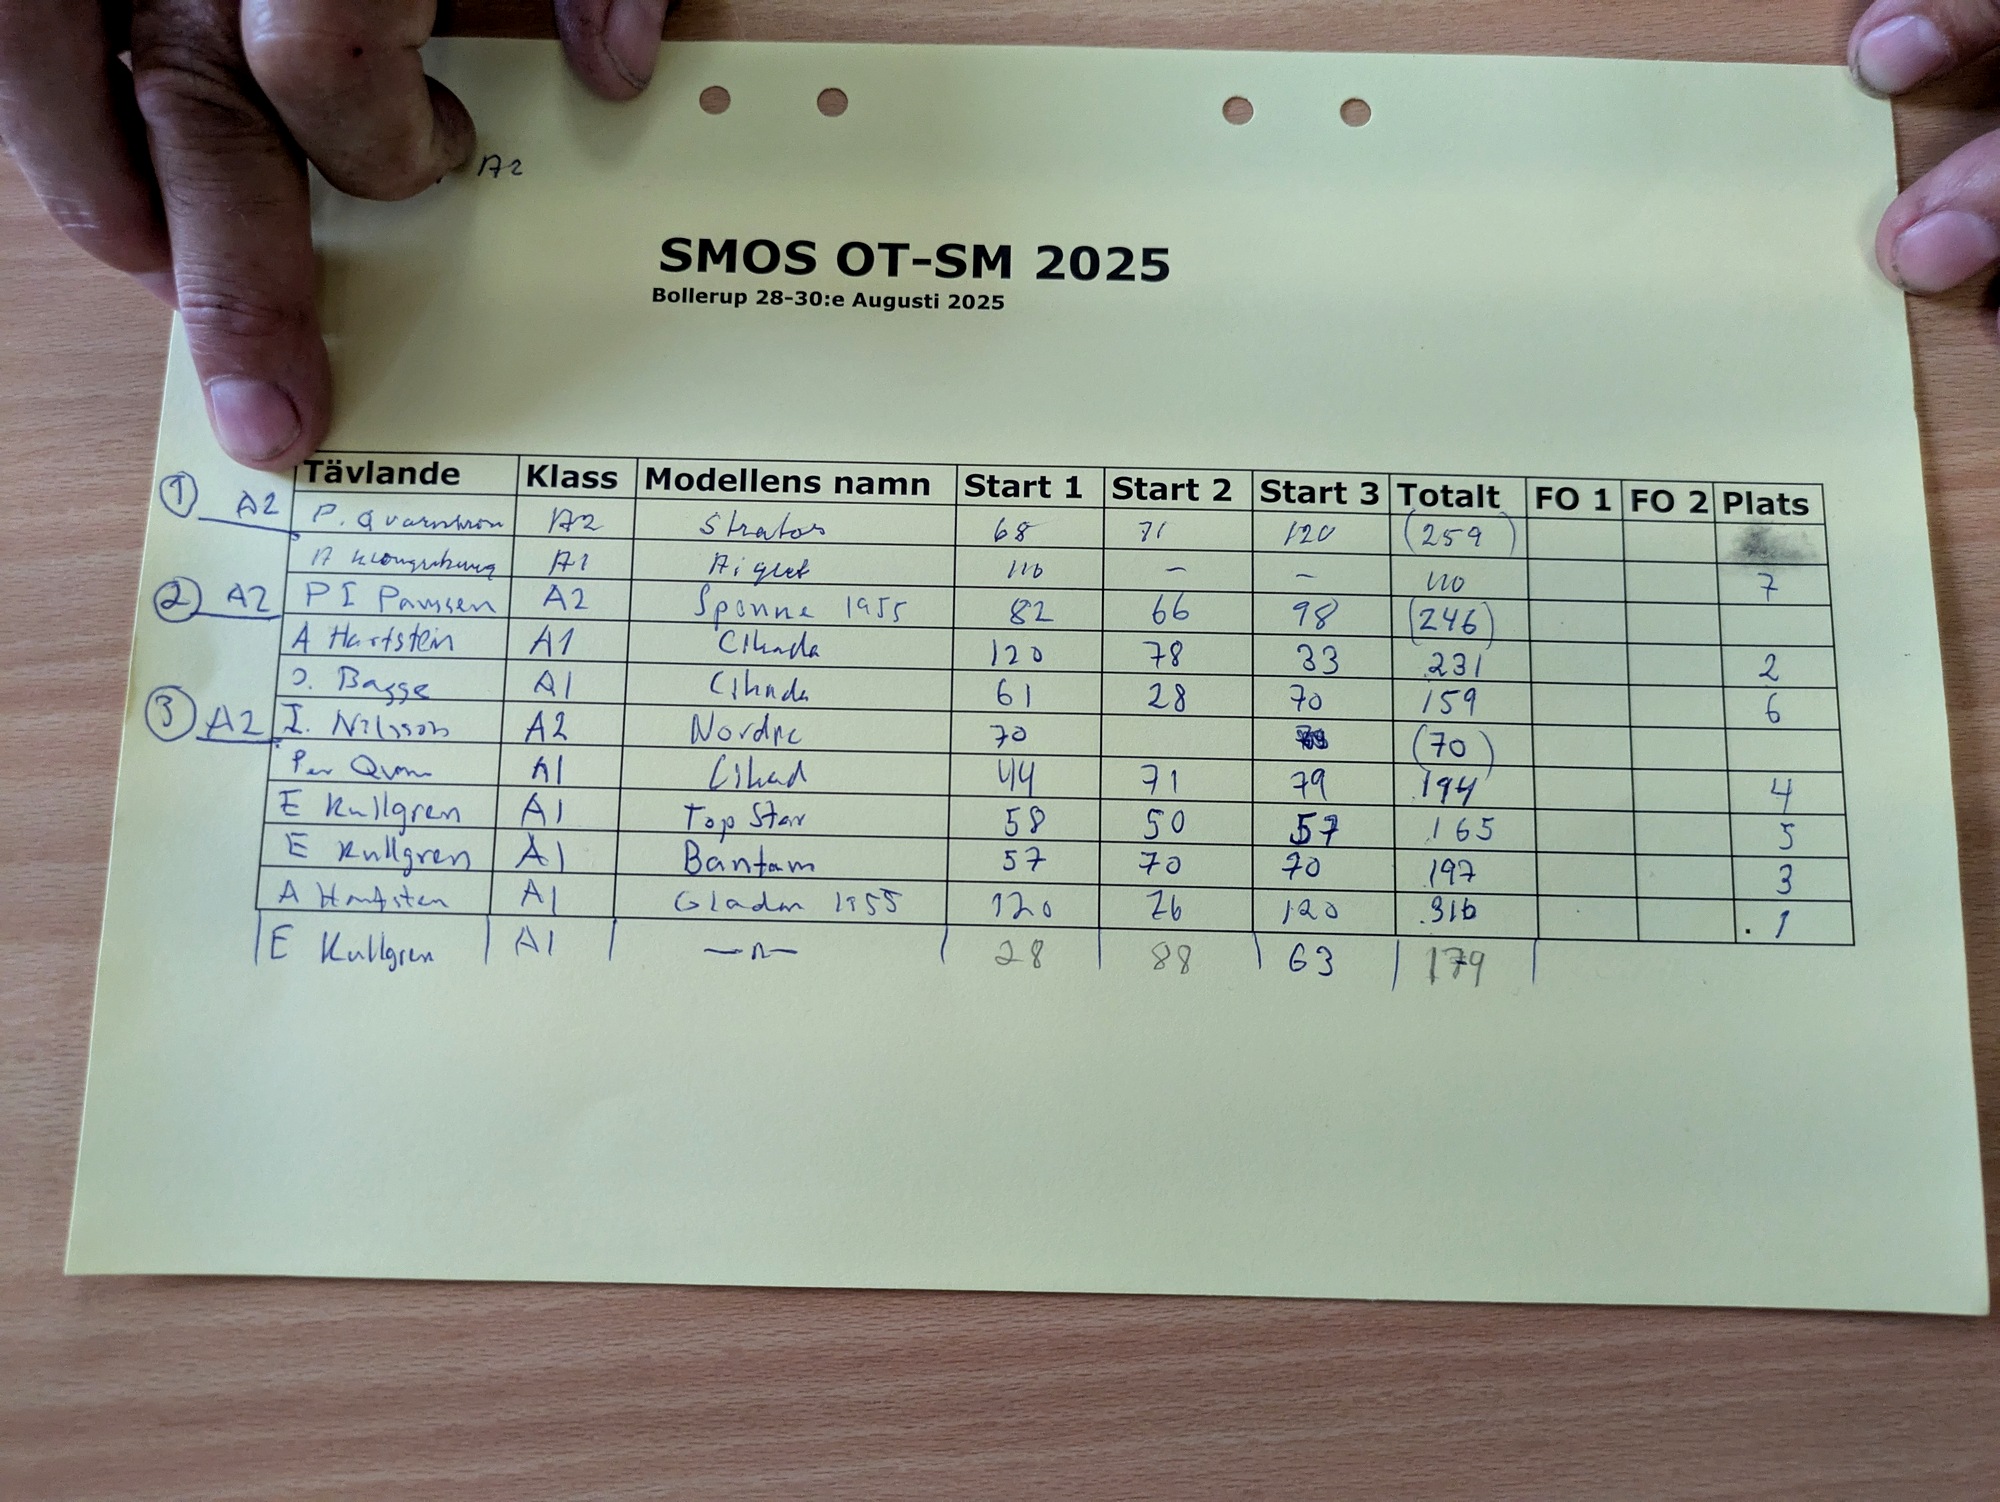 A2
SMOS OT-SM 2025
Bollerup 28-30:e Augusti 2025
Tävlande Klass Modellens namn Start 1 Start 2 Start 3 Totalt FO 1 FO 2 Plats
1 A2 P. Qvarnström A2 Stratos 68 71 120 (259)
A A1 110 - - 110 7
2 A2 P I A2 Spänne 1955 82 66 98 (246)
A Hartstein A1 Cikada 120 78 33 231 2
J. Bagge A1 Cikada 61 28 70 159 6
3 A2 I. Nilsson A2 70 (70)
Per A1 Cikad 44 71 79 194 4
E Kullgren A1 Top Star 58 50 57 165 5
E Kullgren A1 Bantam 57 70 70 197 3
A A1 Gladan 1955 120 76 120 316 1
E Kullgren A1 —n— 28 88 63 179